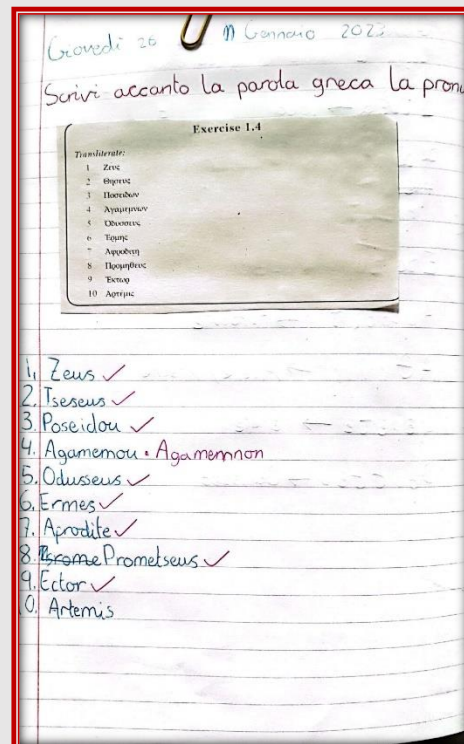 Giovedì 26 Gennaio 2023
Scrivi accanto la parola greca la pronu
Exercise 1.4
Transliterate:
1 Ζευς
2 Θησευς
3 Ποσειδων
4 Ἀγαμεμνων
5 Ὀδυσσευς
6 Ἑρμης
7 Ἀφροδιτη
8 Προμηθευς
9 Ἑκτωρ
10 Ἀρτεμις
1. Zeus ✓
2. Tseseus ✓
3. Poseidou ✓
4. Agamemou • Agamemnon
5. Odusseus ✓
6. Ermes ✓
7. Aprodite ✓
8. Prometseus ✓
9. Ector ✓
0. Artemis